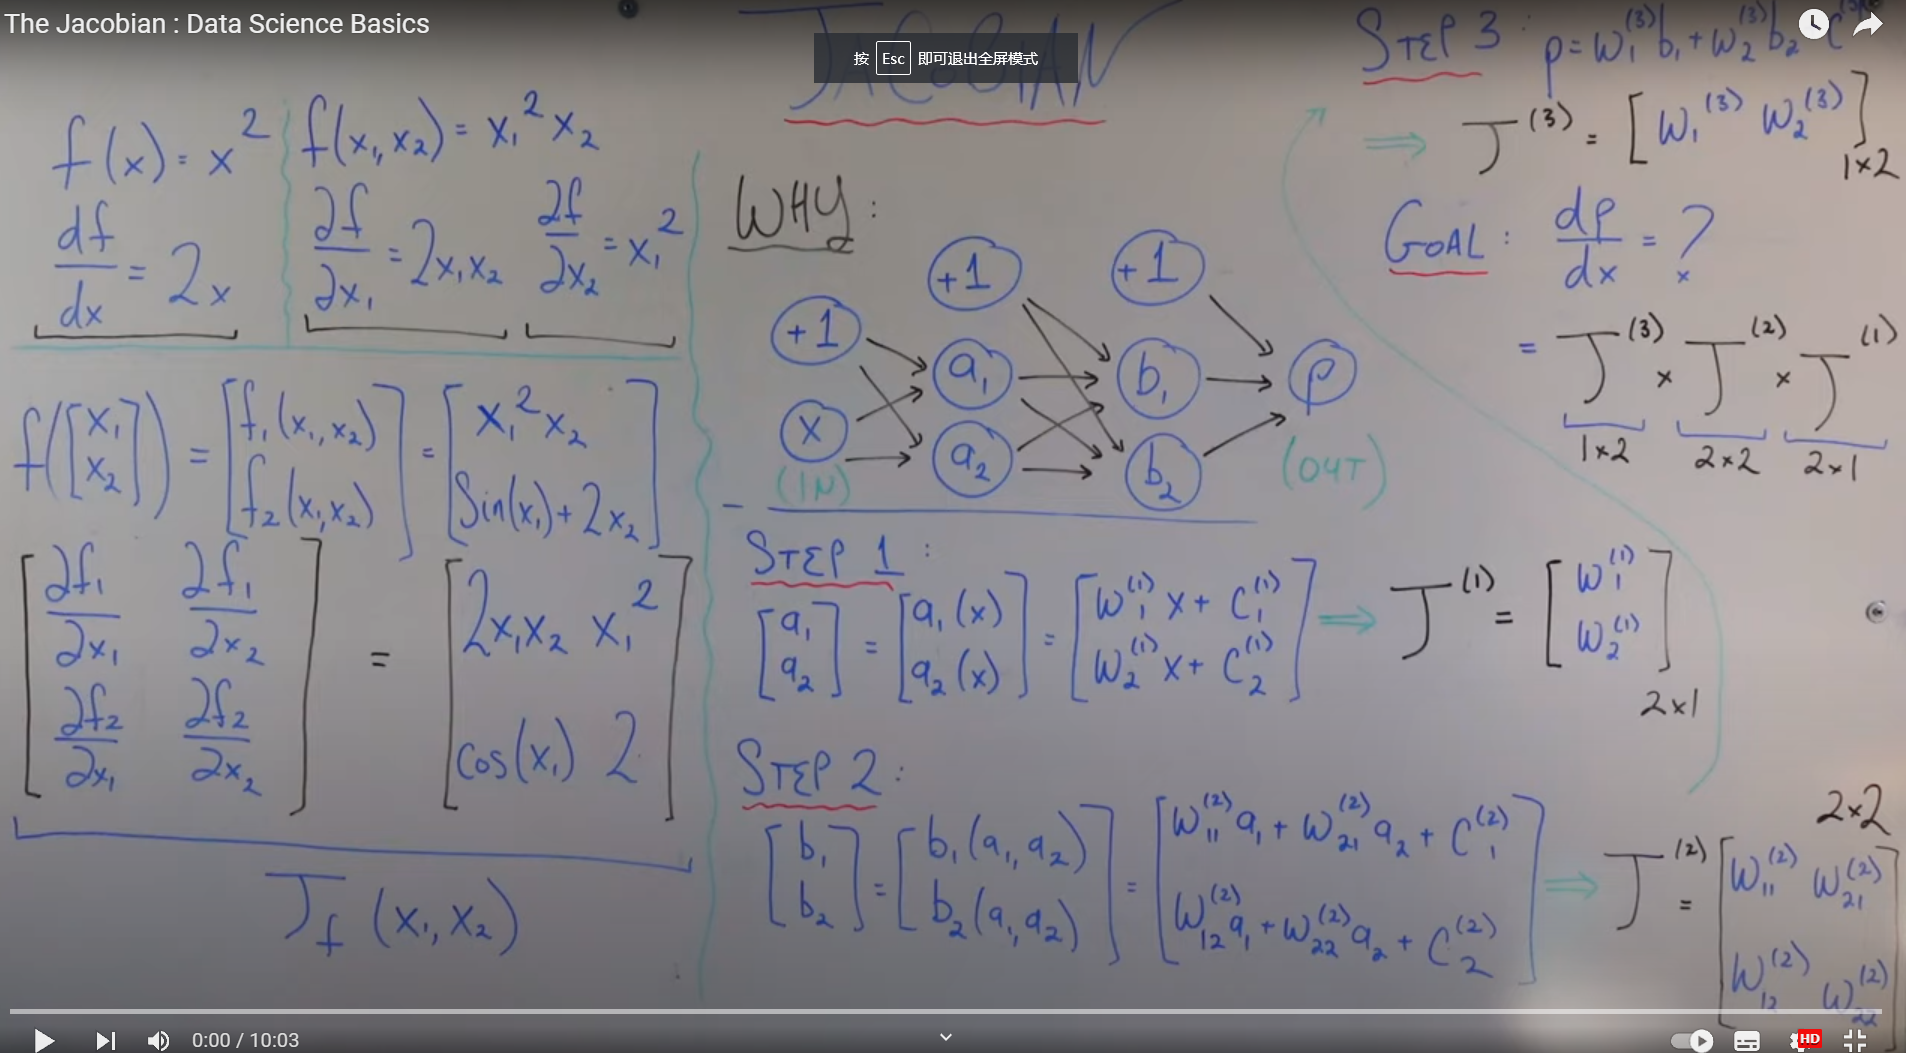 The Jacobian : Data Science Basics
按 Esc 即可退出全屏模式
JACOBIAN
f(x) = x²
df/dx = 2x
f(x₁, x₂) = x₁² x₂
∂f/∂x₁ = 2x₁x₂   ∂f/∂x₂ = x₁²
f([x₁ x₂]) = [f₁(x₁, x₂) f₂(x₁, x₂)] = [x₁² x₂ Sin(x₁) + 2x₂]
[∂f₁/∂x₁ ∂f₁/∂x₂
∂f₂/∂x₁ ∂f₂/∂x₂]
=
[2x₁x₂ x₁²
cos(x₁) 2]
J_f (x₁, x₂)
WHY :
+1 +1 +1
x a₁ a₂ b₁ b₂ p
(IN) (OUT)
STEP 1 :
[a₁ a₂] = [a₁(x) a₂(x)] = [w₁⁽¹⁾x + C₁⁽¹⁾ w₂⁽¹⁾x + C₂⁽¹⁾] ⇒ J⁽¹⁾ = [w₁⁽¹⁾ w₂⁽¹⁾] 2×1
STEP 2 :
[b₁ b₂] = [b₁(a₁, a₂) b₂(a₁, a₂)] = [w₁₁⁽²⁾a₁ + w₂₁⁽²⁾a₂ + C₁⁽²⁾ w₁₂⁽²⁾a₁ + w₂₂⁽²⁾a₂ + C₂⁽²⁾] ⇒ J⁽²⁾ = [w₁₁⁽²⁾ w₂₁⁽²⁾ w₁₂⁽²⁾ w₂₂⁽²⁾] 2×2
STEP 3 : p = w₁⁽³⁾b₁ + w₂⁽³⁾b₂ C
⇒ J⁽³⁾ = [w₁⁽³⁾ w₂⁽³⁾] 1×2
GOAL : dp/dx = ?
= J⁽³⁾ × J⁽²⁾ × J⁽¹⁾
1×2 2×2 2×1
0:00 / 10:03
HD